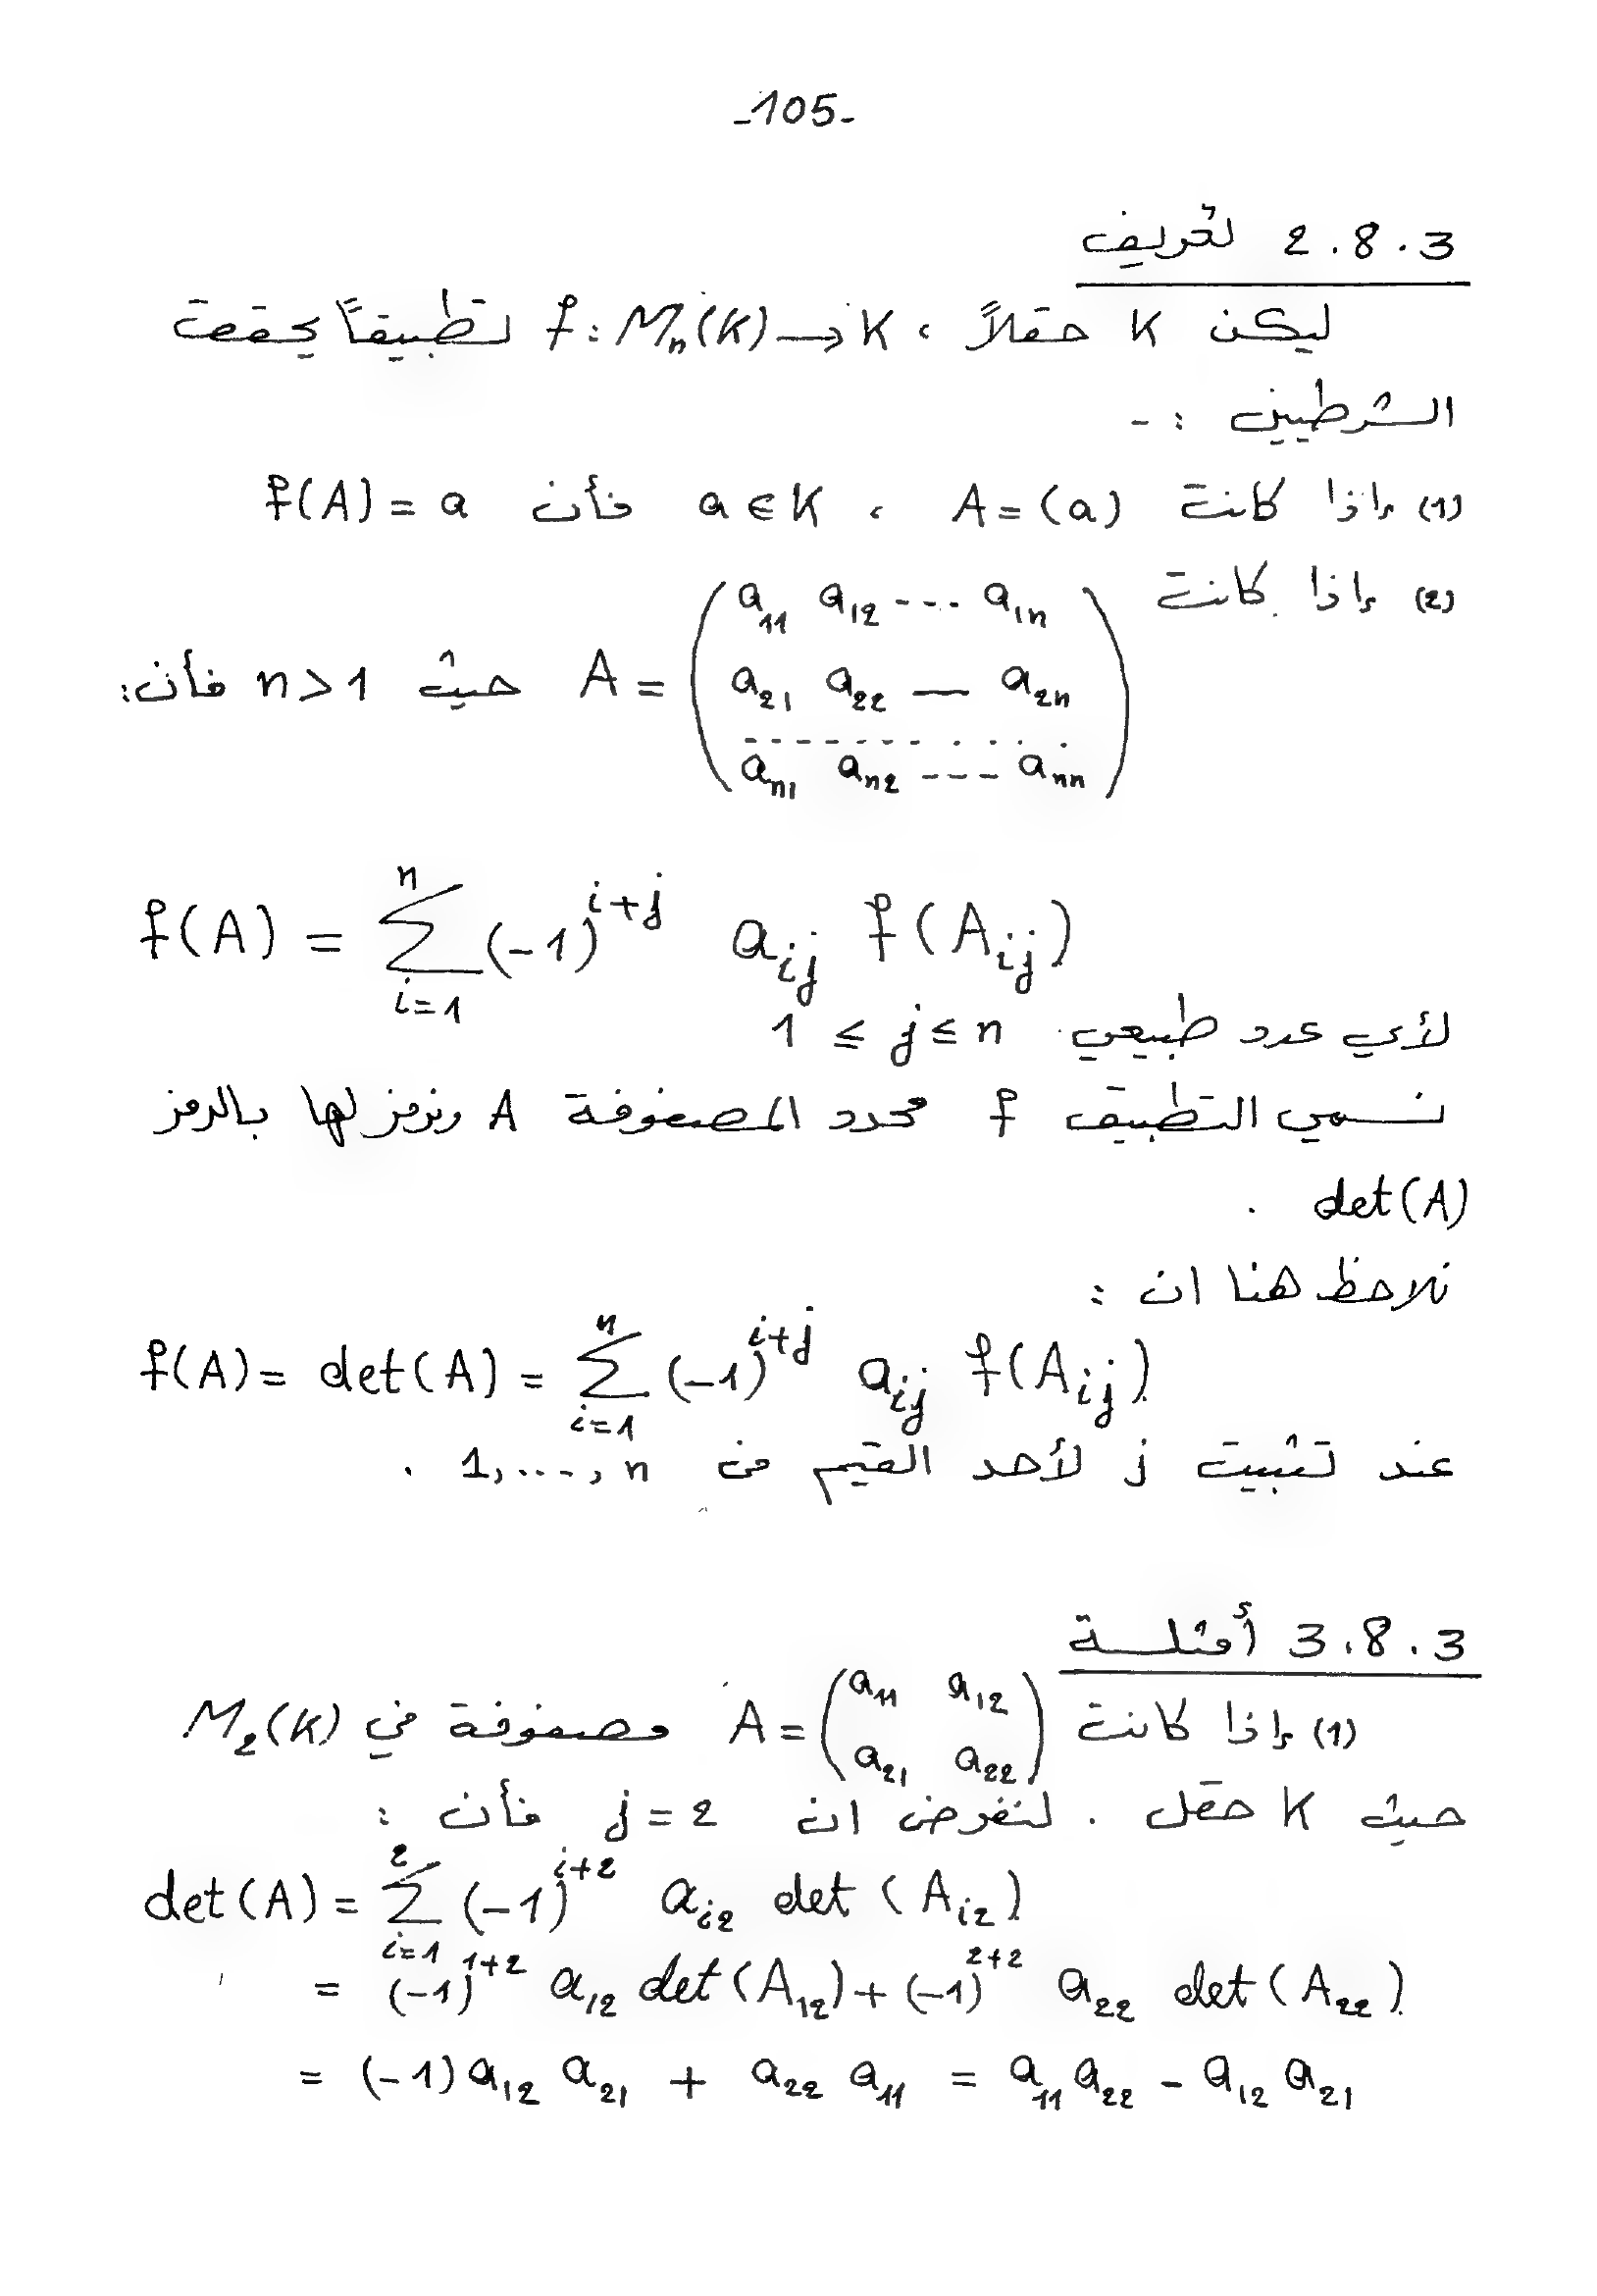 -105-
2.8.3 تعريف
ليكن K حقلاً ، f: Mₙ(K) → K تطبيقاً يحقق
الشرطين : -
(1) إذا كانت A = (a) ، a ∈ K فأن f(A) = a
(2) إذا كانت
a₁₁ a₁₂ --- a₁ₙ
A = ( a₂₁ a₂₂ — a₂ₙ ) حيث n > 1 فأن:
- - - - - - - - - - - -
aₙ₁ aₙ₂ ---- aₙₙ
f(A) = \sum_{i=1}^{n} (-1)^{i+j} a_{ij} f(A_{ij})
لأي عدد طبيعي 1 ≤ j ≤ n
نسمي التطبيق f محدد المصفوفة A ونرمز لها بالرمز
det(A) .
نلاحظ هنا ان :
f(A) = det(A) = \sum_{i=1}^{n} (-1)^{i+j} a_{ij} f(A_{ij})
عند تثبيت j لأحد القيم من 1,...,n .
3.8.3 أمثلة
(1) إذا كانت A = \begin{pmatrix} a_{11} & a_{12} \\ a_{21} & a_{22} \end{pmatrix} مصفوفة في M₂(K)
حيث K حقل . لنفرض ان j = 2 فأن :
det(A) = \sum_{i=1}^{2} (-1)^{i+2} a_{i2} det(A_{i2})
= (-1)^{1+2} a_{12} det(A_{12}) + (-1)^{2+2} a_{22} det(A_{22})
= (-1) a_{12} a_{21} + a_{22} a_{11} = a_{11} a_{22} - a_{12} a_{21}